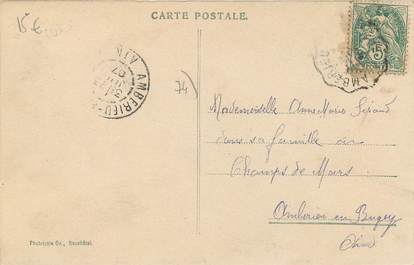 15 €
CARTE POSTALE.
5
AMBERIEU
AIN
07
74
Mademoiselle Anne Marie
dans sa famille au
Champs de Mars
Ambérieu en Bugey
(Ain)
Phototypie Co., Neuchâtel